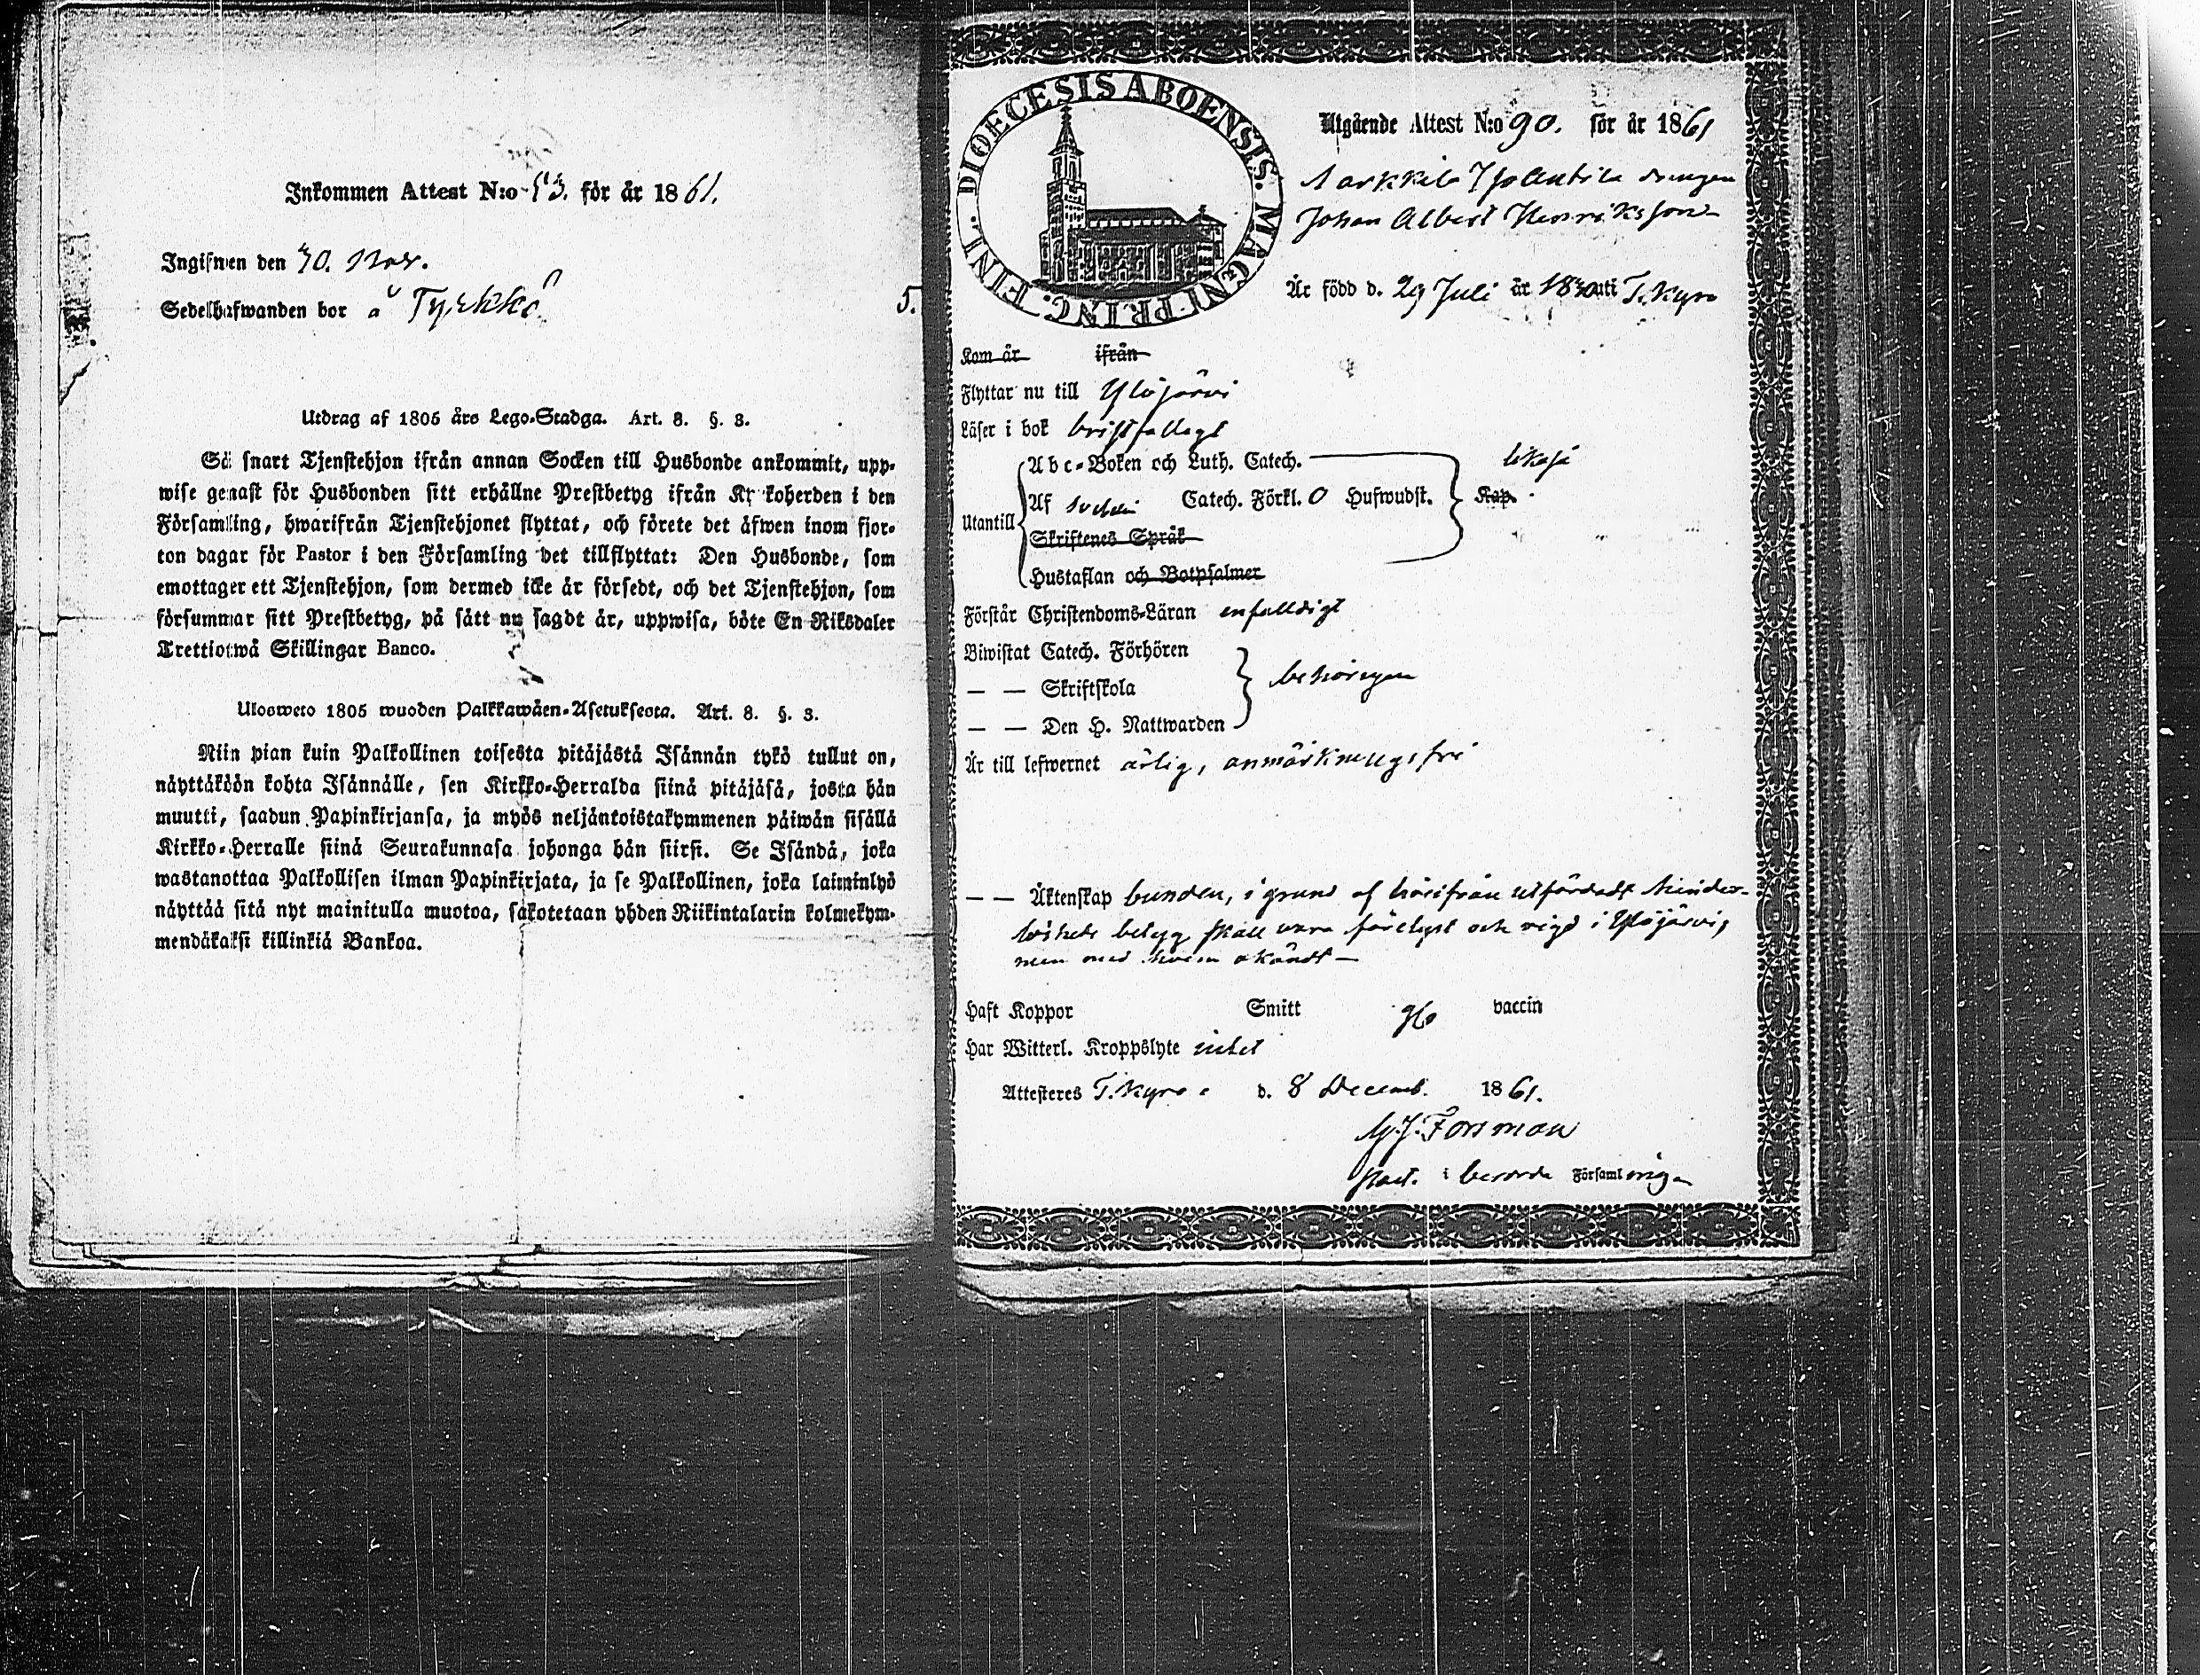 Inkommen Attest N:o 53. för år 1861.
Ingifwen den 30. Nov.
Sedelhafwanden bor å Tyrkkö
Utdrag af 1805 års Lego-Stadga. Art. 8. §. 3.
Så snart Tjenstehjon ifrån annan Socken till Husbonde ankommit, upp-
wise genast för Husbonden sitt erhållne Prestbetyg ifrån Kyrkoherden i den
Församling, hwarifrån Tjenstehjonet flyttat, och förete det äfwen inom fjor-
ton dagar för Pastor i den Församling det tillflyttat: Den Husbonde, som
emottager ett Tjenstehjon, som dermed icke är försedt, och det Tjenstehjon, som
försummar sitt Prestbetyg, på sätt nu sagdt är, uppwisa, böte En Riksdaler
Trettiotwå Skillingar Banco.
Ulosweto 1805 wuoden Palkkawäen-Asetuksesta. Art. 8. §. 3.
Niin pian kuin Palkollinen toisesta pitäjästä Isännän tykö tullut on,
näyttäköön kohta Isännälle, sen Kirkko-Herralda siinä pitäjäsä, josta hän
muutti, saadun Papinkirjansa, ja myös neljäntoistakymmenen päiwän sisällä
Kirkko-Herralle siinä Seurakunnasa johonga hän siirsi. Se Isändä, joka
wastanottaa Palkollisen ilman Papinkirjata, ja se Palkollinen, joka laiminlyö
näyttää sitä nyt mainitulla muotoa, sakotetaan yhden Riikintalarin kolmekym-
mendäkaksi killinkiä Bankoa.
5.
DIOECESIS ABOENSIS. MAGNI PRINC. FINL.
Utgående Attest N:o 90. för år 1861
drengen
Johan Albert Henriksson
Är född d. 29 Juli år 1830 uti T. Kyro
Kom år ifrån
Flyttar nu till Ylöjärvi
Läser i bok bristfälligt
Abc-Boken och Luth. Catech. likaså
Utantill Af Catech. Förkl. 0 Hufwudst. Kap.
Skriftenes Språk
Hustaflan och Botpsalmer
Förstår Christendoms-Läran enfaldigt
Biwistat Catech. Förhören
— — Skriftskola behörigen
— — Den H. Nattwarden
Är till lefwernet ärlig, anmärkningsfri
— — Äktenskap bunden, i grund af härifrån utfärdadt hinder-
löshets betyg skall vara förelyst och vigd i Ylöjärvi,
men med hvem okändt —
Haft Koppor Smitt vaccin
Har Witterl. Kroppslyte intet
Attesteres T. Kyro d. 8 Decemb. 1861.
Forsman
Past. i berörde Församlingen